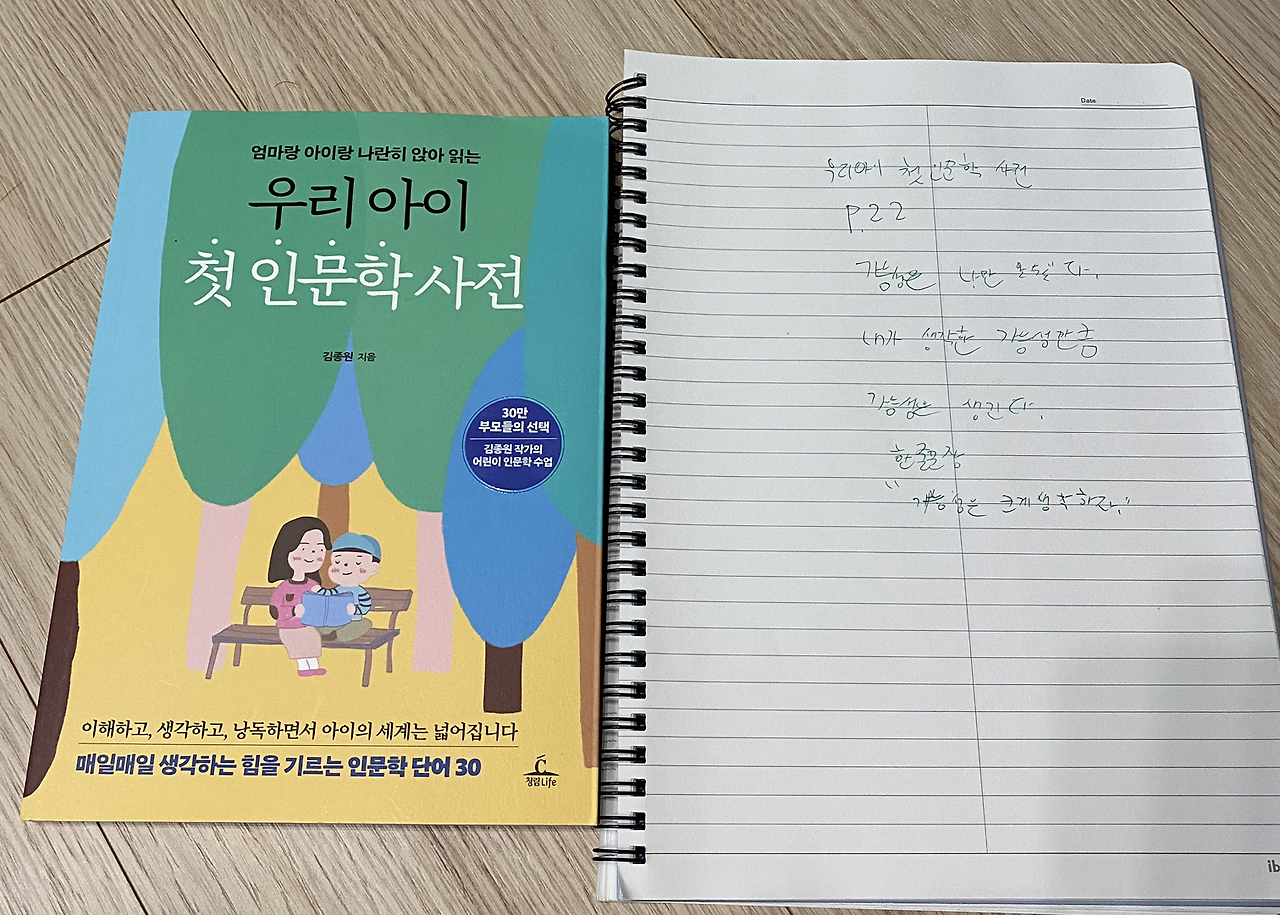 엄마랑 아이랑 나란히 앉아 읽는
우리 아이
첫 인문학 사전
김종원 지음
30만
부모들의 선택
김종원 작가의
어린이 인문학 수업
이해하고, 생각하고, 낭독하면서 아이의 세계는 넓어집니다
매일매일 생각하는 힘을 기르는 인문학 단어 30
청림Life
Date
우리아이 첫 인문학 사전
P.22
가능성은 나만
내가 생각한 가능성만큼
가능성은 생긴다.
한줄문장
"가능성은 크게 생각하자."
ib